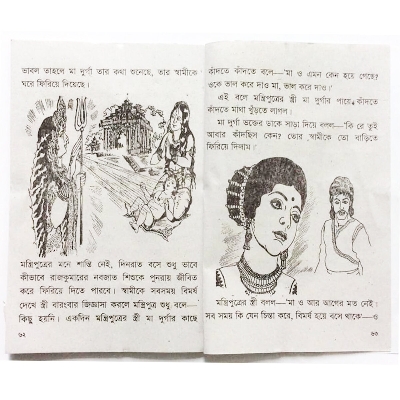 ভাবল তাহলে মা দুর্গা তার কথা শুনেছে, তার স্বামীকে
ঘরে ফিরিয়ে দিয়েছে।
মন্ত্রিপুত্রের মনে শান্তি নেই, দিনরাত বসে শুধু ভাবে
কীভাবে রাজকুমারের নবজাত শিশুকে পুনরায় জীবিত
করে ফিরিয়ে দিতে পারবে। স্বামীকে সবসময় বিমর্ষ
দেখে স্ত্রী বারংবার জিজ্ঞাসা করলে মন্ত্রিপুত্র শুধু বলে—
কিছু হয়নি। একদিন মন্ত্রিপুত্রের স্ত্রী মা দুর্গার কাছে
৬২
কাঁদতে কাঁদতে বলে—'মা ও এমন কেন হয়ে গেছে?
ওকে ভাল করে দাও মা, ভাল করে দাও।'
এই বলে মন্ত্রিপুত্রের স্ত্রী মা দুর্গার পায়ে কাঁদতে
কাঁদতে মাথা খুঁড়তে লাগল।
মা দুর্গা ভক্তের ডাকে সাড়া দিয়ে বলল—'কি রে তুই
আবার কাঁদছিস কেন? তোর স্বামীকে তো বাড়িতে
ফিরিয়ে দিলাম।'
মন্ত্রিপুত্রের স্ত্রী বলল—'মা ও আর আগের মত নেই।
সব সময় কি যেন চিন্তা করে, বিমর্ষ হয়ে বসে থাকে'—ও
৬৩